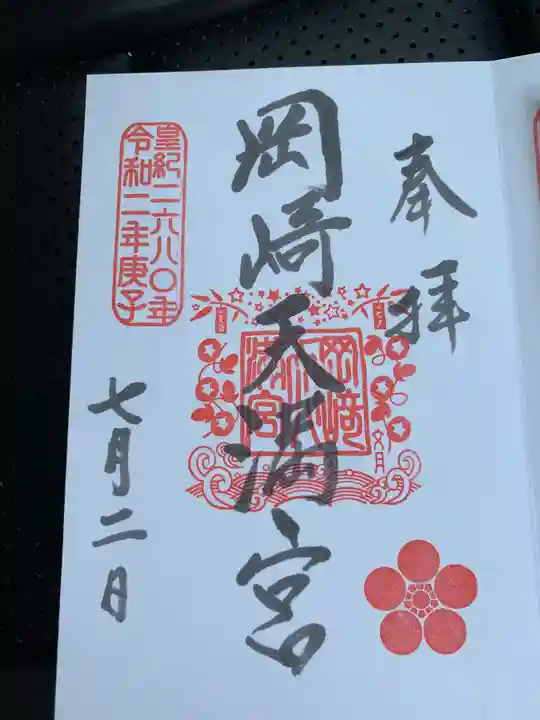 奉拝
岡崎天満宮
岡﨑
天満宮
文月
皇紀二六八〇年
令和二年庚子
七月二日